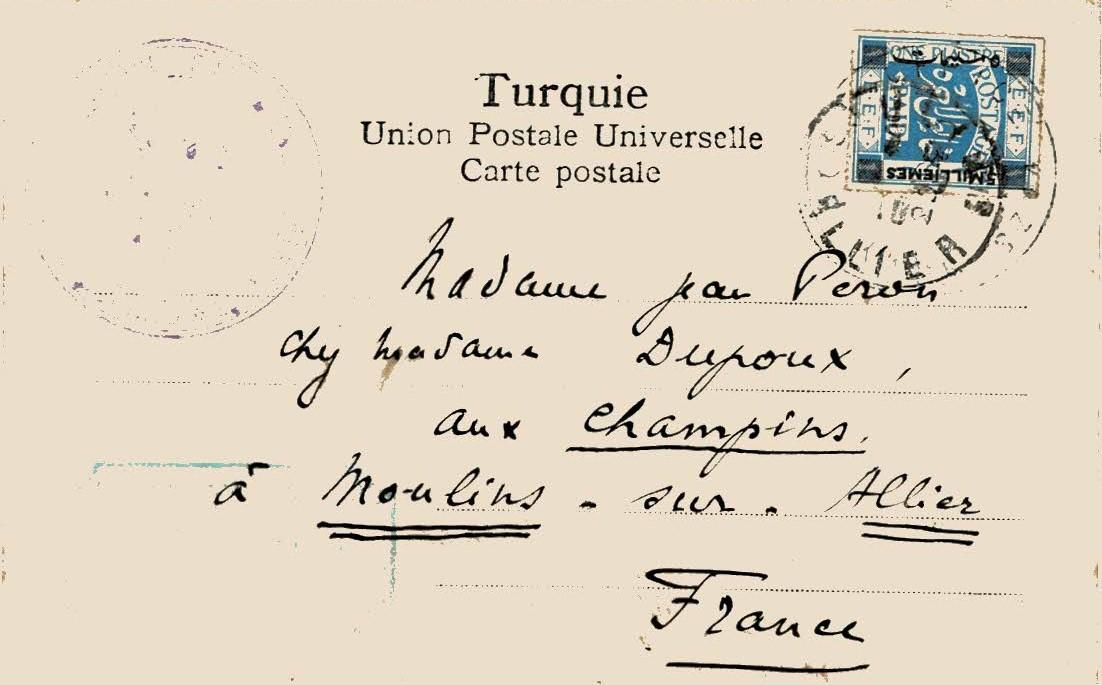 Turquie
Union Postale Universelle
Carte postale
ONE PIASTRE
E.E.F.
E.E.F.
5 MILLIEMES
Madame jean Peron
chez madame Dupoux,
aux Champins.
à Moulins - sur - Allier
France